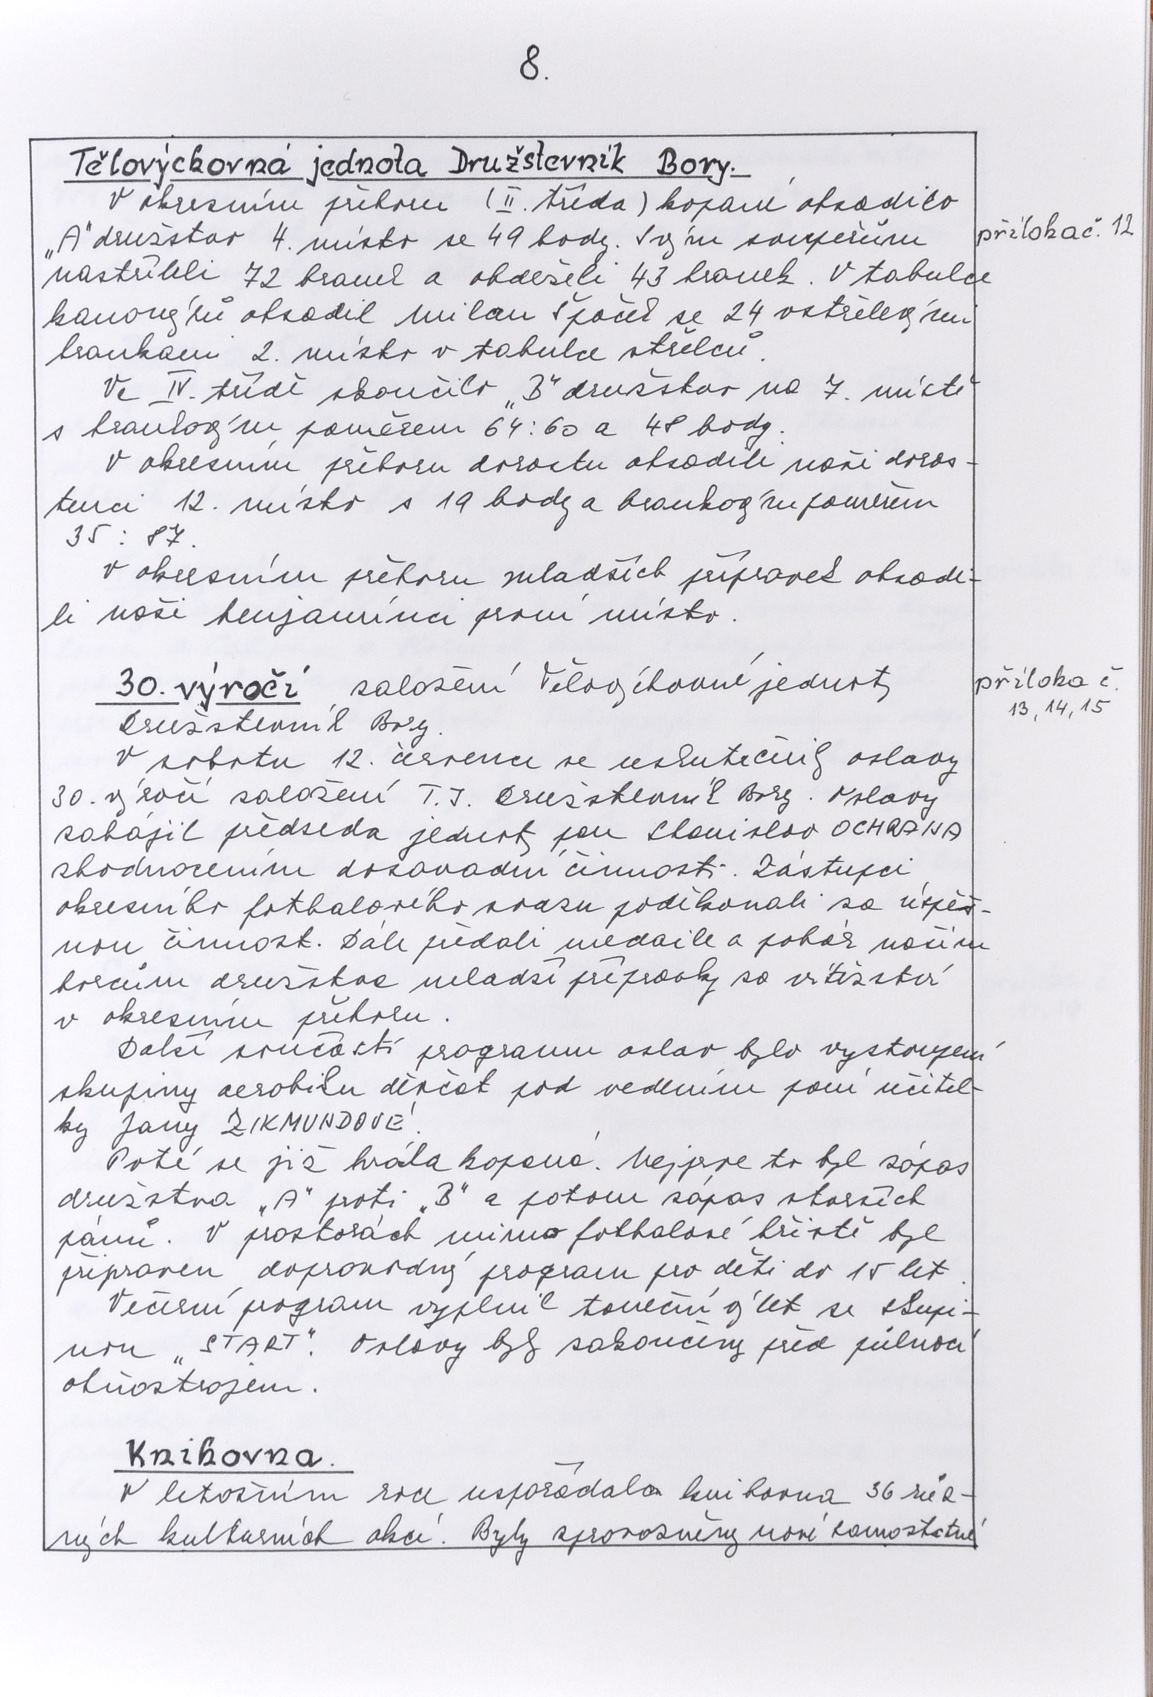 8.
Tělovýchovná jednota Družstevník Bory.
V okresním přeboru (II. třída) kopané obsadilo
„A" družstvo 4. místo se 49 body. Svým soupeřům
příloha č. 12
nastříleli 72 branek a obdrželi 43 branek. V tabulce
kanonýrů obsadil Milan Špaček se 24 vstřelenými
brankami 2. místo v tabulce střelců.
Ve IV. třídě skončilo „B" družstvo na 7. místě
s brankovým poměrem 64:60 a 48 body.
V okresním přeboru dorostu obsadili naši doros-
tenci 12. místo s 19 body a brankovým poměrem
35:87.
V okresním přeboru mladších přípravek obsadi-
li naši benjamínci první místo.
30. výročí založení Tělovýchovné jednoty
příloha č.
13, 14, 15
Družstevník Bory.
V sobotu 12. července se uskutečnily oslavy
30. výročí založení T.J. Družstevník Bory. Oslavy
zahájil předseda jednoty pan Stanislav OCHRANA
zhodnocením dosavadní činnosti. Zástupci
okresního fotbalového svazu poděkovali za úspěš-
nou činnost. Dále předali medaile a pohár našim
borcům družstva mladší přípravky za vítězství
v okresním přeboru.
Další součástí programu oslav bylo vystoupení
skupiny aerobiku děvčat pod vedením paní učitel-
ky Jany ZIKMUNDOVÉ.
Poté se již hrála kopaná. Nejprve to byl zápas
družstva „A" proti „B" a potom zápas starších
pánů. V prostorách mimo fotbalové hřiště byl
připraven doprovodný program pro děti do 15 let.
Večerní program vyplnil taneční výlet se skupi-
nou „START". Oslavy byly zakončeny před půlnocí
ohňostrojem.
Knihovna.
V letošním roce uspořádala knihovna 36 růz-
ných kulturních akcí. Byly zprovozněny nové samostatné